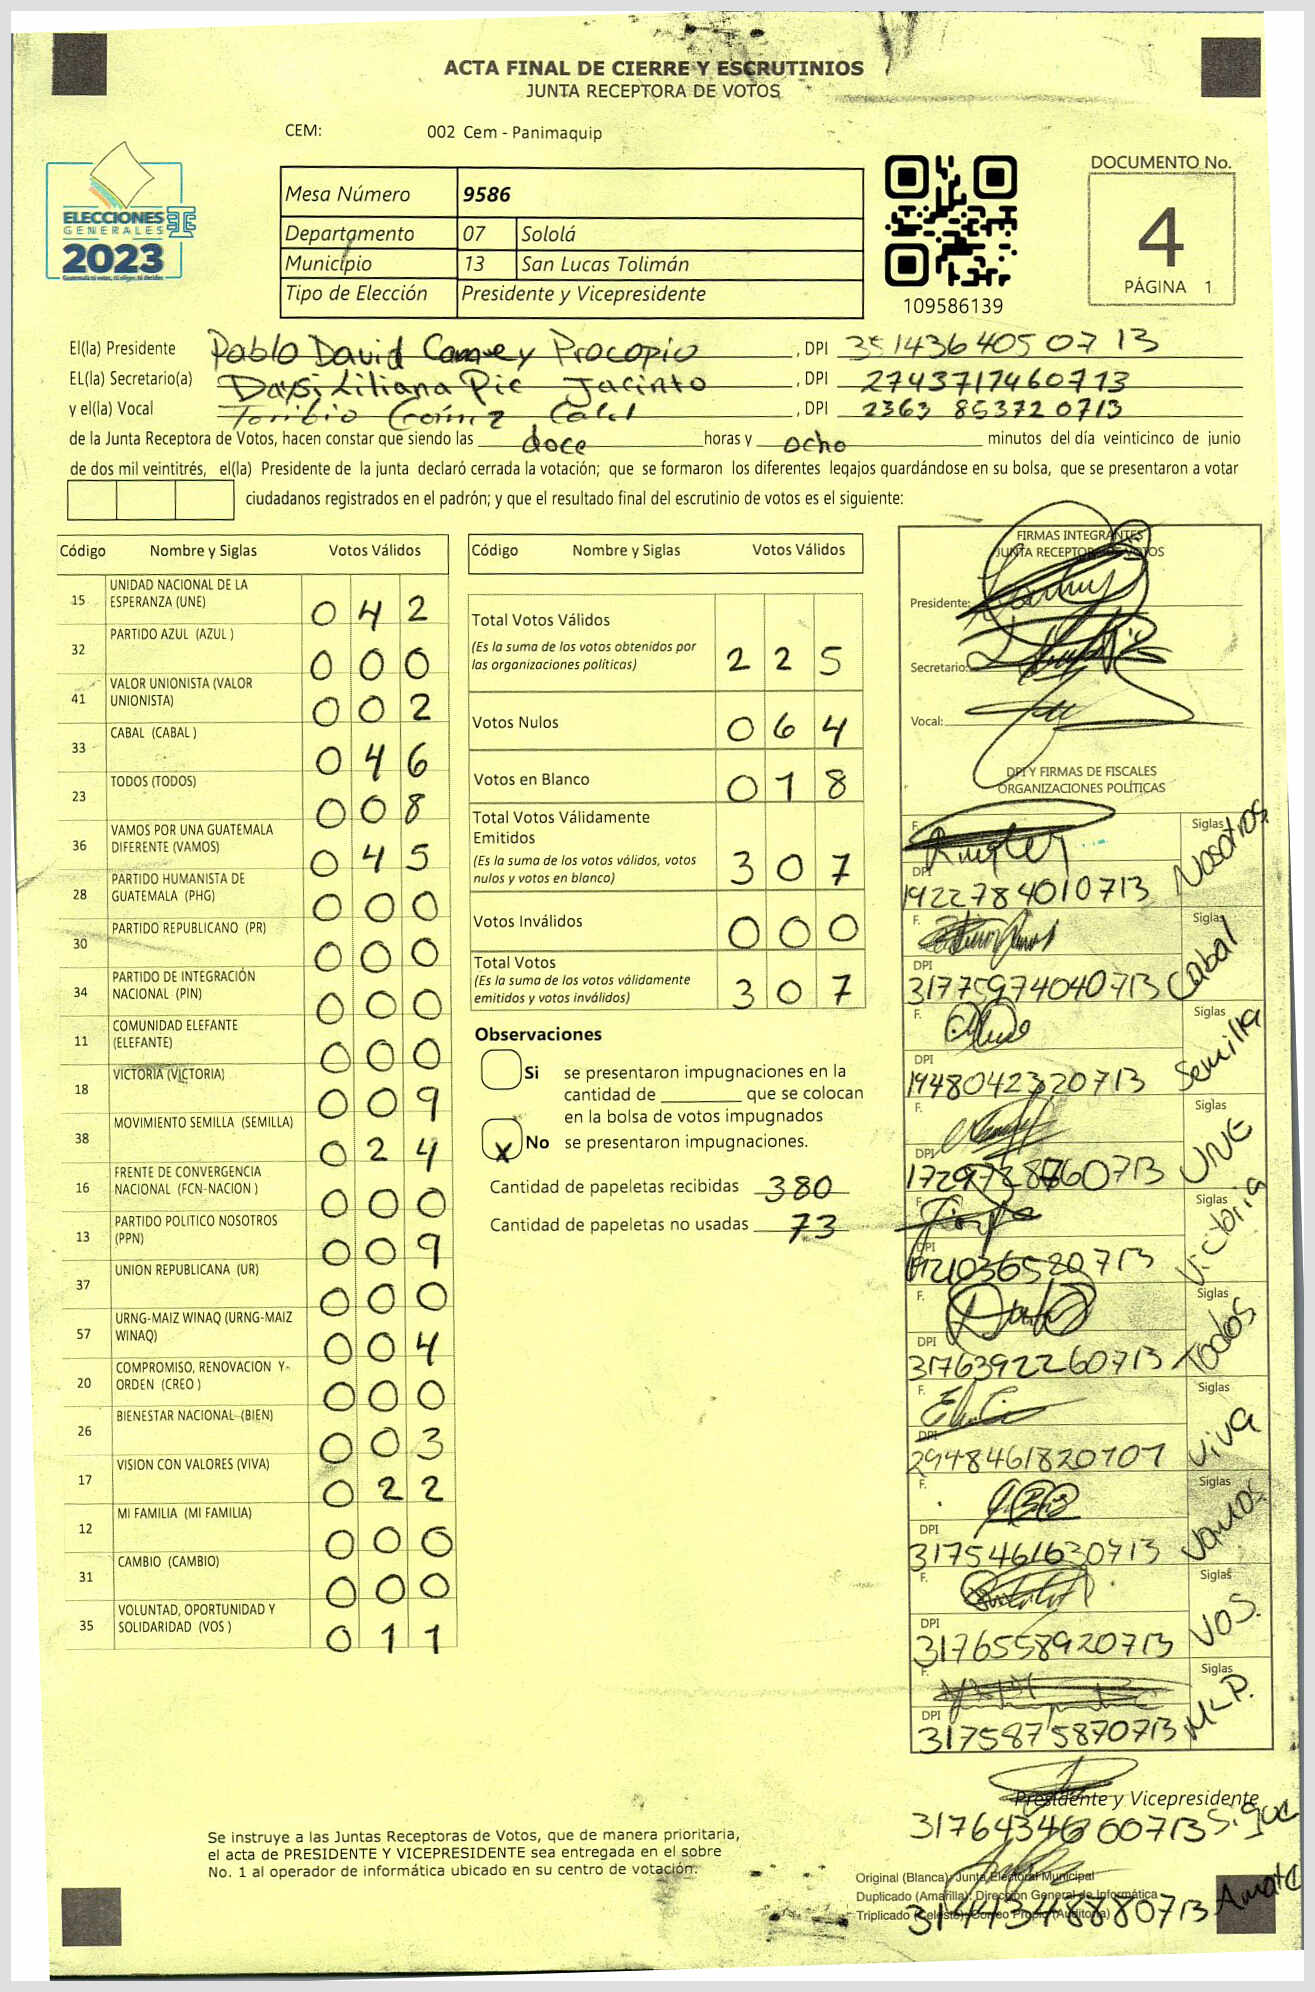 ACTA FINAL DE CIERRE Y ESCRUTINIOS
JUNTA RECEPTORA DE VOTOS
CEM: 002 Cem - Panimaquip
ELECCIONES
GENERALES
2023
Mesa Número 9586
Departamento 07 Sololá
Municipio 13 San Lucas Tolimán
Tipo de Elección Presidente y Vicepresidente
109586139
DOCUMENTO No.
4
PÁGINA 1
El(la) Presidente Pablo David Camey Procopio, DPI 3514364050713
EL(la) Secretario(a) Daysi Liliana Pic Jacinto, DPI 2743717460713
y el(la) Vocal Toribio Gómez Calel, DPI 2363 853720713
de la Junta Receptora de Votos, hacen constar que siendo las doce horas y ocho minutos del día veinticinco de junio
de dos mil veintitrés, el(la) Presidente de la junta declaró cerrada la votación; que se formaron los diferentes legajos guardándose en su bolsa, que se presentaron a votar
ciudadanos registrados en el padrón; y que el resultado final del escrutinio de votos es el siguiente:
Código Nombre y Siglas Votos Válidos
15 UNIDAD NACIONAL DE LA ESPERANZA (UNE) 042
32 PARTIDO AZUL (AZUL ) 000
41 VALOR UNIONISTA (VALOR UNIONISTA) 002
33 CABAL (CABAL ) 046
23 TODOS (TODOS) 008
36 VAMOS POR UNA GUATEMALA DIFERENTE (VAMOS) 045
28 PARTIDO HUMANISTA DE GUATEMALA (PHG) 000
30 PARTIDO REPUBLICANO (PR) 000
34 PARTIDO DE INTEGRACIÓN NACIONAL (PIN) 000
11 COMUNIDAD ELEFANTE (ELEFANTE) 000
18 VICTORIA (VICTORIA) 009
38 MOVIMIENTO SEMILLA (SEMILLA) 024
16 FRENTE DE CONVERGENCIA NACIONAL (FCN-NACION ) 000
13 PARTIDO POLITICO NOSOTROS (PPN) 009
37 UNION REPUBLICANA (UR) 000
57 URNG-MAIZ WINAQ (URNG-MAIZ WINAQ) 004
20 COMPROMISO, RENOVACION Y ORDEN (CREO ) 000
26 BIENESTAR NACIONAL (BIEN) 003
17 VISION CON VALORES (VIVA) 022
12 MI FAMILIA (MI FAMILIA) 000
31 CAMBIO (CAMBIO) 000
35 VOLUNTAD, OPORTUNIDAD Y SOLIDARIDAD (VOS ) 011
Código Nombre y Siglas Votos Válidos
Total Votos Válidos 225
(Es la suma de los votos obtenidos por
las organizaciones políticas)
Votos Nulos 064
Votos en Blanco 018
Total Votos Válidamente
Emitidos 307
(Es la suma de los votos válidos, votos
nulos y votos en blanco)
Votos Inválidos 000
Total Votos 307
(Es la suma de los votos válidamente
emitidos y votos inválidos)
Observaciones
Si se presentaron impugnaciones en la
cantidad de ________ que se colocan
en la bolsa de votos impugnados
X No se presentaron impugnaciones.
Cantidad de papeletas recibidas 380
Cantidad de papeletas no usadas 73
FIRMAS INTEGRANTES
JUNTA RECEPTORA DE VOTOS
Presidente:
Secretario:
Vocal:
DPI Y FIRMAS DE FISCALES
ORGANIZACIONES POLÍTICAS
F. Siglas Nosotros
DPI 1922784010713
F. Siglas Cabal
DPI 3177597404040713
F. Siglas Semilla
DPI 1948042320713
F. Siglas UNE
DPI
F. Siglas Victoria
DPI
F. Siglas Todos
DPI 3176392260713
F. Siglas Viva
DPI 2948461820707
F. Siglas Vamos
DPI 3175461630713
F. Siglas VOS.
DPI 3176558920713
F. Siglas MLP.
DPI 3175875870713
Presidente y Vicepresidente
Sigue
Se instruye a las Juntas Receptoras de Votos, que de manera prioritaria,
el acta de PRESIDENTE Y VICEPRESIDENTE sea entregada en el sobre
No. 1 al operador de informática ubicado en su centro de votación.
Original (Blanca): Junta Electoral Municipal
Duplicado (Amarilla): Dirección General de Informática
Triplicado (Celeste): Correo Propio (Auditoria)